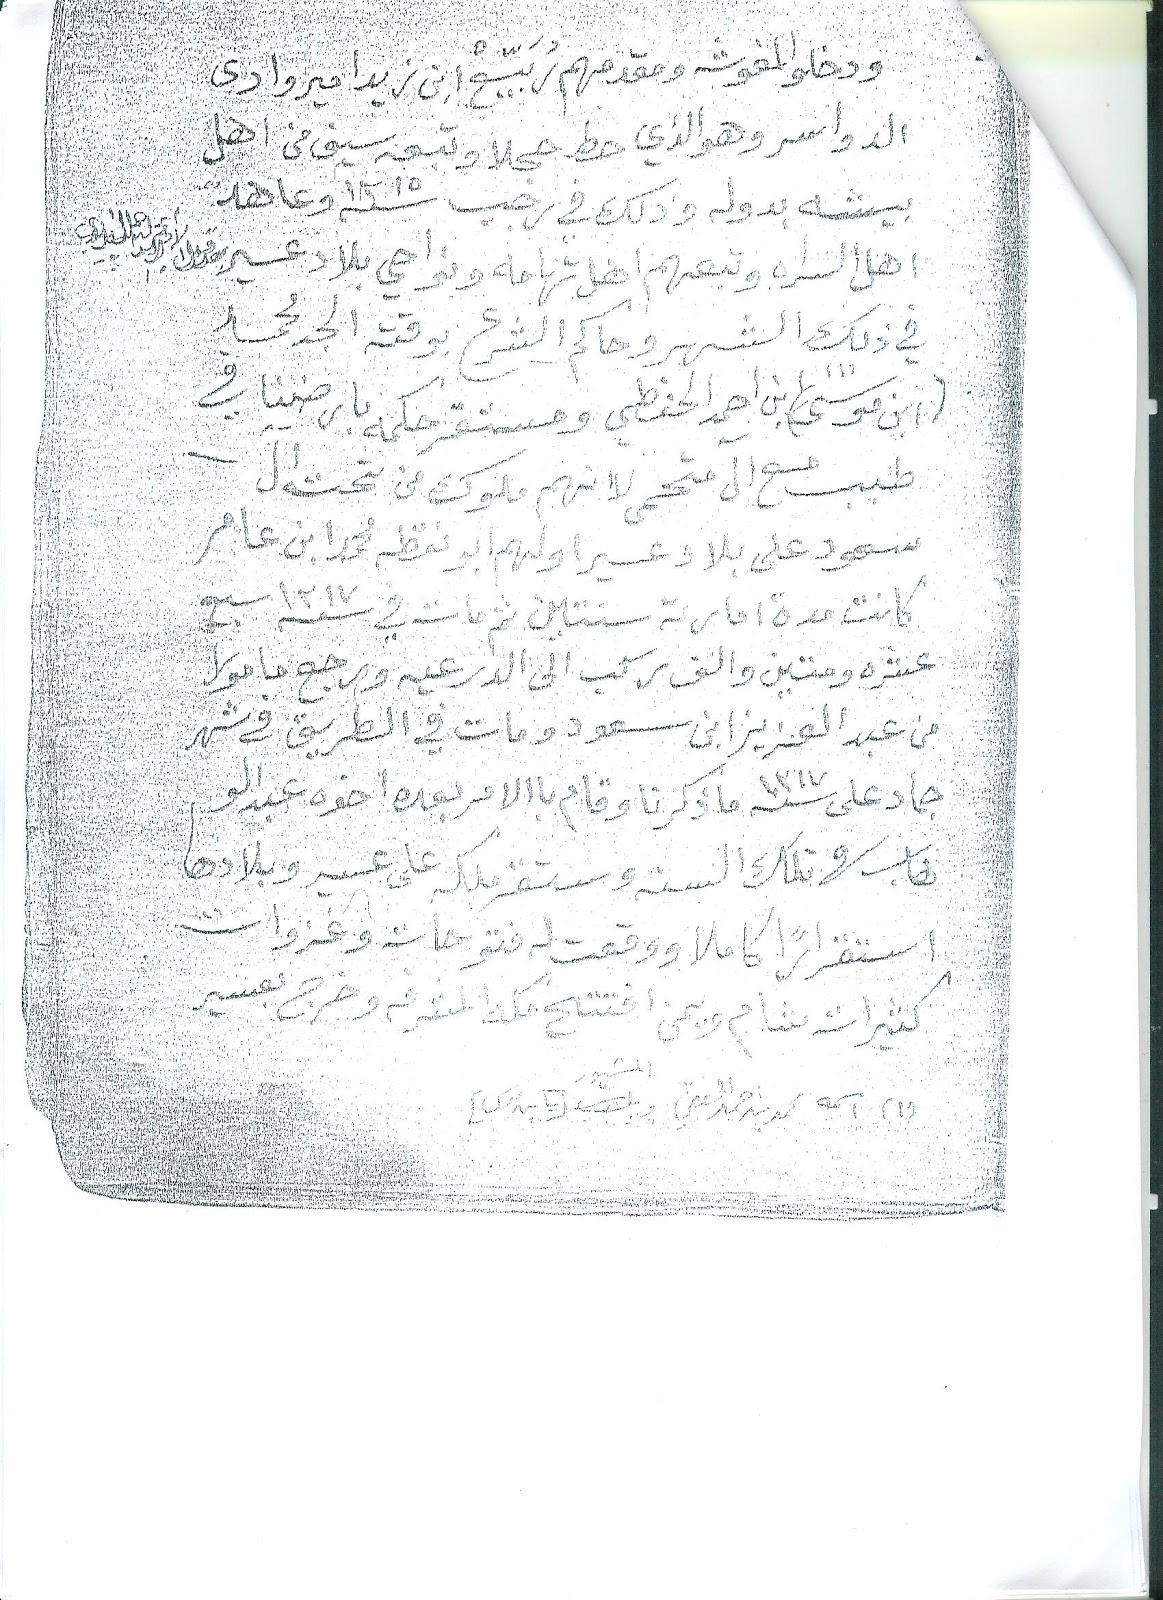 ودخلو المغوثه ومقدمهم رُبَيّعْ ابن زيد امير وادى
الدواسر وهو الذي حط حجلا وتبعه سيف من اهل
بيشه بدوله وذلك في رجب سنة ١٢١٥ وعاهد
اهل السراه وتبعهم اهل تهامه ونواحي بلاد عسير
في ذلك الشهر وحاكم الشرع بوقته الجد محمد
(ابن موسى) (١) ابن احمد الحفظي ومستقر حكمه بارضنا في
طبب مع ال متحمي لانهم ملوك من تحت ال
سعود على بلاد عسير اولهم ابو نقطه محمد ابن عامر
كانت مدة امارته سنتين ثم مات في سنة ١٢١٧ سبع
عشره ومتين والف ركب الى الدرعيه ورجع مامورا
من عبد العزيز ابن سعود ومات في الطريق في شهر
جماد على سنة ١٢١٧ ما ذكرنا وقام باالامر بعده اخوه عبد الو
هاب تلك السنه وستقر ملكه على عسير وبلادها
استقرارًا كاملا ووقعت له فتوحات وغزوات
كثيرات شام ويمن افتتح مكه المشرفه وخرج بعسير
(١) اسمه محمد بن احمد الحفظي المشهور